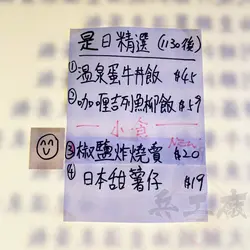 是日精選(1130後)
①溫泉蛋牛丼飯 $45
②咖喱吉列魚柳飯 $59
小食
New
③椒鹽炸燒賣 $20
④日本甜薯仔 $19